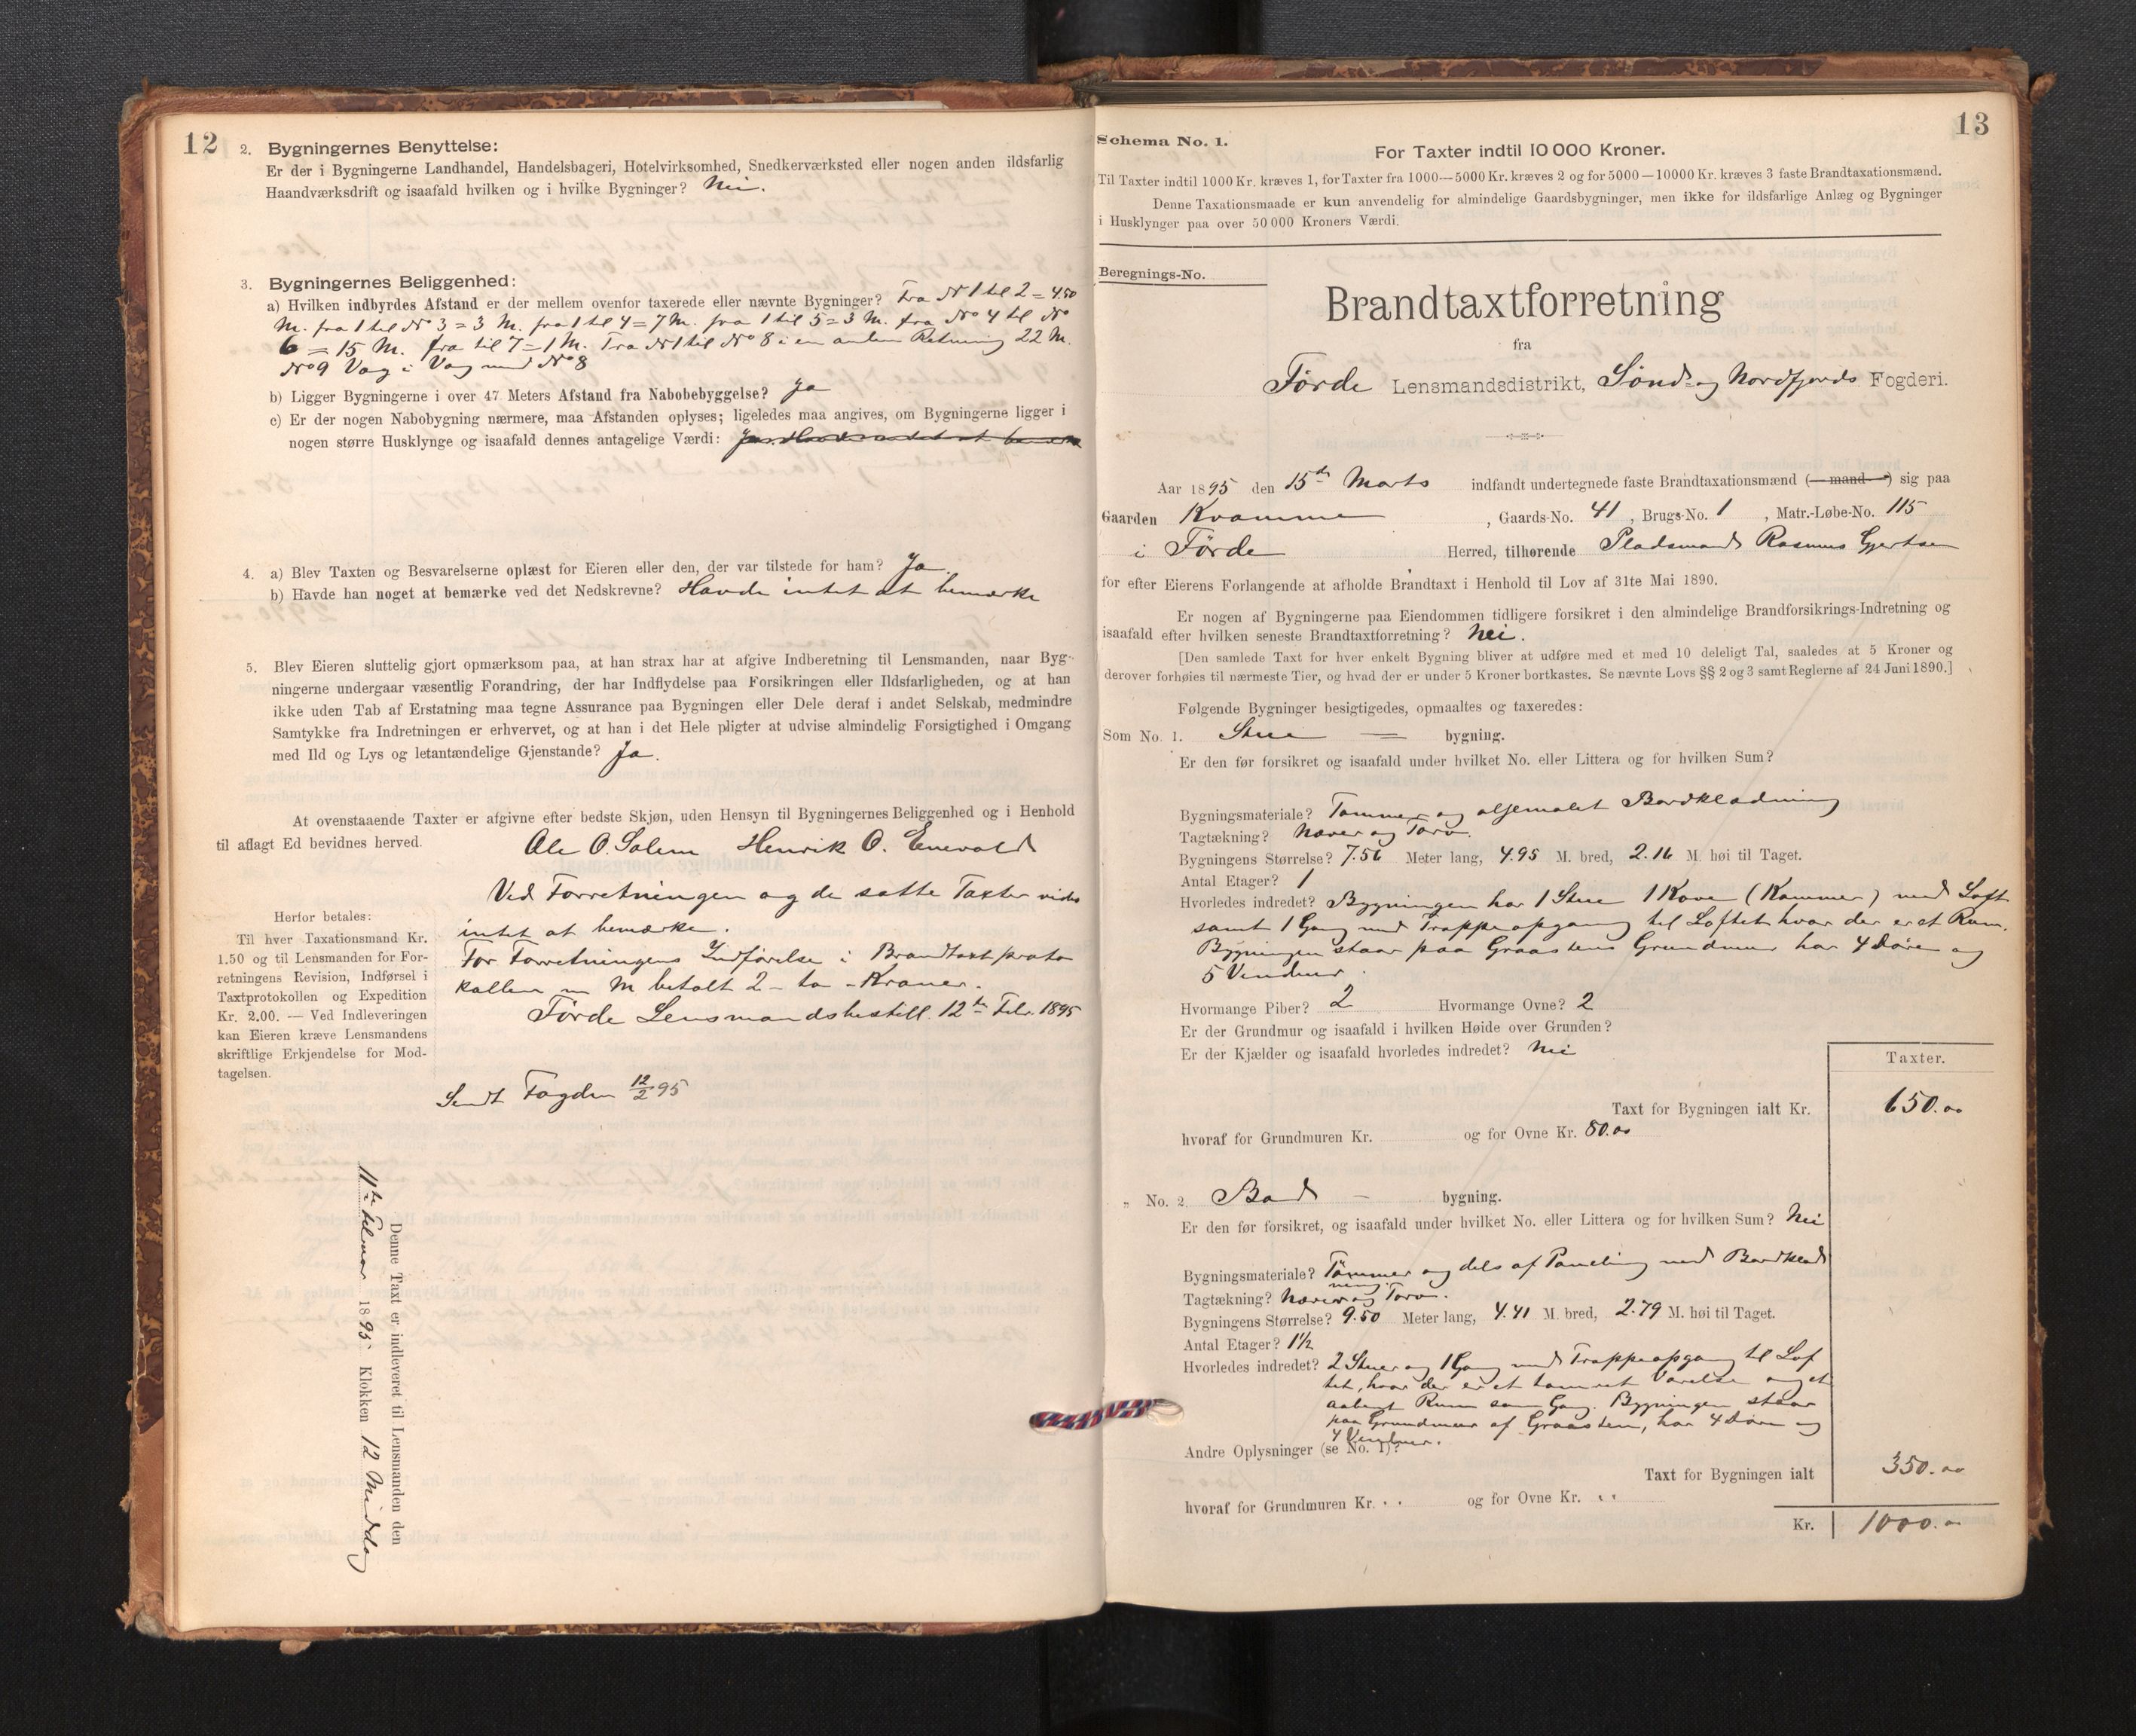 12
2. Bygningernes Benyttelse:
Er der i Bygningerne Landhandel, Handelsbageri, Hotelvirksomhed, Snedkerværksted eller nogen anden ildsfarlig
Haandværksdrift og isaafald hvilken og i hvilke Bygninger? Nei.
3. Bygningernes Beliggenhed:
a) Hvilken indbyrdes Afstand er der mellem ovenfor taxerede eller nævnte Bygninger? Fra No 1 til 2 = 4.50
M. fra 1 til No 3 = 3 M. fra 1 til 4 = 7 M. fra 1 til 5 = 3 M. fra No 4 til No
6 = 15 M. fra til 7 = 1 M. Fra No 1 til No 8 i en anden Retning 22 M.
No 9 Væg i Væg med No 8
b) Ligger Bygningerne i over 47 Meters Afstand fra Nabobebyggelse? Ja
c) Er der nogen Nabobygning nærmere, maa Afstanden oplyses; ligeledes maa angives, om Bygningerne ligger i
nogen større Husklynge og isaafald dennes antagelige Værdi:
4. a) Blev Taxten og Besvarelserne oplæst for Eieren eller den, der var tilstede for ham? Ja.
b) Havde han noget at bemærke ved det Nedskrevne? Havde intet at bemærke
5. Blev Eieren sluttelig gjort opmærksom paa, at han strax har at afgive Indberetning til Lensmanden, naar Byg-
ningerne undergaar væsentlig Forandring, der har Indflydelse paa Forsikringen eller Ildsfarligheden, og at han
ikke uden Tab af Erstatning maa tegne Assurance paa Bygningen eller Dele deraf i andet Selskab, medmindre
Samtykke fra Indretningen er erhvervet, og at han i det Hele pligter at udvise almindelig Forsigtighed i Omgang
med Ild og Lys og letantændelige Gjenstande? Ja.
At ovenstaaende Taxter er afgivne efter bedste Skjøn, uden Hensyn til Bygningernes Beliggenhed og i Henhold
til aflagt Ed bevidnes herved.
Ole O. Solem Henrik O.
Ved Forretningen og de satte Taxter vides
intet at bemærke.
For Forretningens Indførelse i Brandtaxtproto
kollen m M betalt 2 - to - Kroner.
Førde Lensmandsbestill. 12te Feb. 1895
Herfor betales:
Til hver Taxationsmand Kr.
1.50 og til Lensmanden for For-
retningens Revision, Indførsel i
Taxtprotokollen og Expedition
Kr. 2.00. — Ved Indleveringen
kan Eieren kræve Lensmandens
skriftlige Erkjendelse for Mod-
tagelsen.
Sendt Fogden 12/2 95
Denne Taxt er indleveret til Lensmanden den
11te Februar 1895 Klokken 12 Middag
13
Schema No. 1.
For Taxter indtil 10 000 Kroner.
Til Taxter indtil 1000 Kr. kræves 1, for Taxter fra 1000—5000 Kr. kræves 2 og for 5000—10000 Kr. kræves 3 faste Brandtaxationsmænd.
Denne Taxationsmaade er kun anvendelig for almindelige Gaardsbygninger, men ikke for ildsfarlige Anlæg og Bygninger
i Husklynger paa over 50 000 Kroners Værdi.
Beregnings-No.
Brandtaxtforretning
fra
Førde Lensmandsdistrikt, Sønd- og Nordfjords Fogderi.
Aar 1895 den 15de Marts indfandt undertegnede faste Brandtaxationsmænd (mand) sig paa
Gaarden Kvamme, Gaards-No. 41, Brugs-No. 1, Matr.-Løbe-No. 115
i Førde Herred, tilhørende Pladsmand Rasmus Gjertsen
for efter Eierens Forlangende at afholde Brandtaxt i Henhold til Lov af 31te Mai 1890.
Er nogen af Bygningerne paa Eiendommen tidligere forsikret i den almindelige Brandforsikrings-Indretning og
isaafald efter hvilken seneste Brandtaxtforretning? Nei.
[Den samlede Taxt for hver enkelt Bygning bliver at udføre med et med 10 deleligt Tal, saaledes at 5 Kroner og
derover forhøies til nærmeste Tier, og hvad der er under 5 Kroner bortkastes. Se nævnte Lovs §§ 2 og 3 samt Reglerne af 24 Juni 1890.]
Følgende Bygninger besigtigedes, opmaaltes og taxeredes:
Som No. 1. Stue bygning.
Er den før forsikret og isaafald under hvilket No. eller Littera og for hvilken Sum?
Bygningsmateriale? Tømmer og oljemalet Bordklædning
Tagtækning? Næver og Torv.
Bygningens Størrelse? 7.56 Meter lang, 4.95 M. bred, 2.16 M. høi til Taget.
Antal Etager? 1
Hvorledes indredet? Bygningen har 1 Stue 1 Kove (Kammer) med Loft
samt 1 Gang med Trappeopgang til Loftet hvor der er et Rum.
Bygningen staar paa Graastens Grundmur har 4 Døre og
5 Vinduer.
Hvormange Piber? 2 Hvormange Ovne? 2
Er der Grundmur og isaafald i hvilken Høide over Grunden?
Er der Kjælder og isaafald hvorledes indredet? Nei
Taxter.
Taxt for Bygningen ialt Kr. 650.00
hvoraf for Grundmuren Kr. og for Ovne Kr. 80.00
„ No. 2. Bod bygning.
Er den før forsikret, og isaafald under hvilket No. eller Littera og for hvilken Sum? Nei
Bygningsmateriale? Tømmer og dels af Paneling med Bordklæd
ning.
Tagtækning? Næver og Torv.
Bygningens Størrelse? 9.50 Meter lang, 4.41 M. bred, 2.79 M. høi til Taget.
Antal Etager? 1½
Hvorledes indredet? 2 Stuer og 1 Gang med Trappeopgang til Lof
tet, hvor der er et tømret Værelse og et
aabent Rum som Gang. Bygningen staar
paa Grundmur af Graasten, har 4 Døre og
4 Vinduer.
Andre Oplysninger (se No. 1)?
Taxt for Bygningen ialt 350.00
hvoraf for Grundmuren Kr. „ og for Ovne Kr. „
Kr. 1000.00